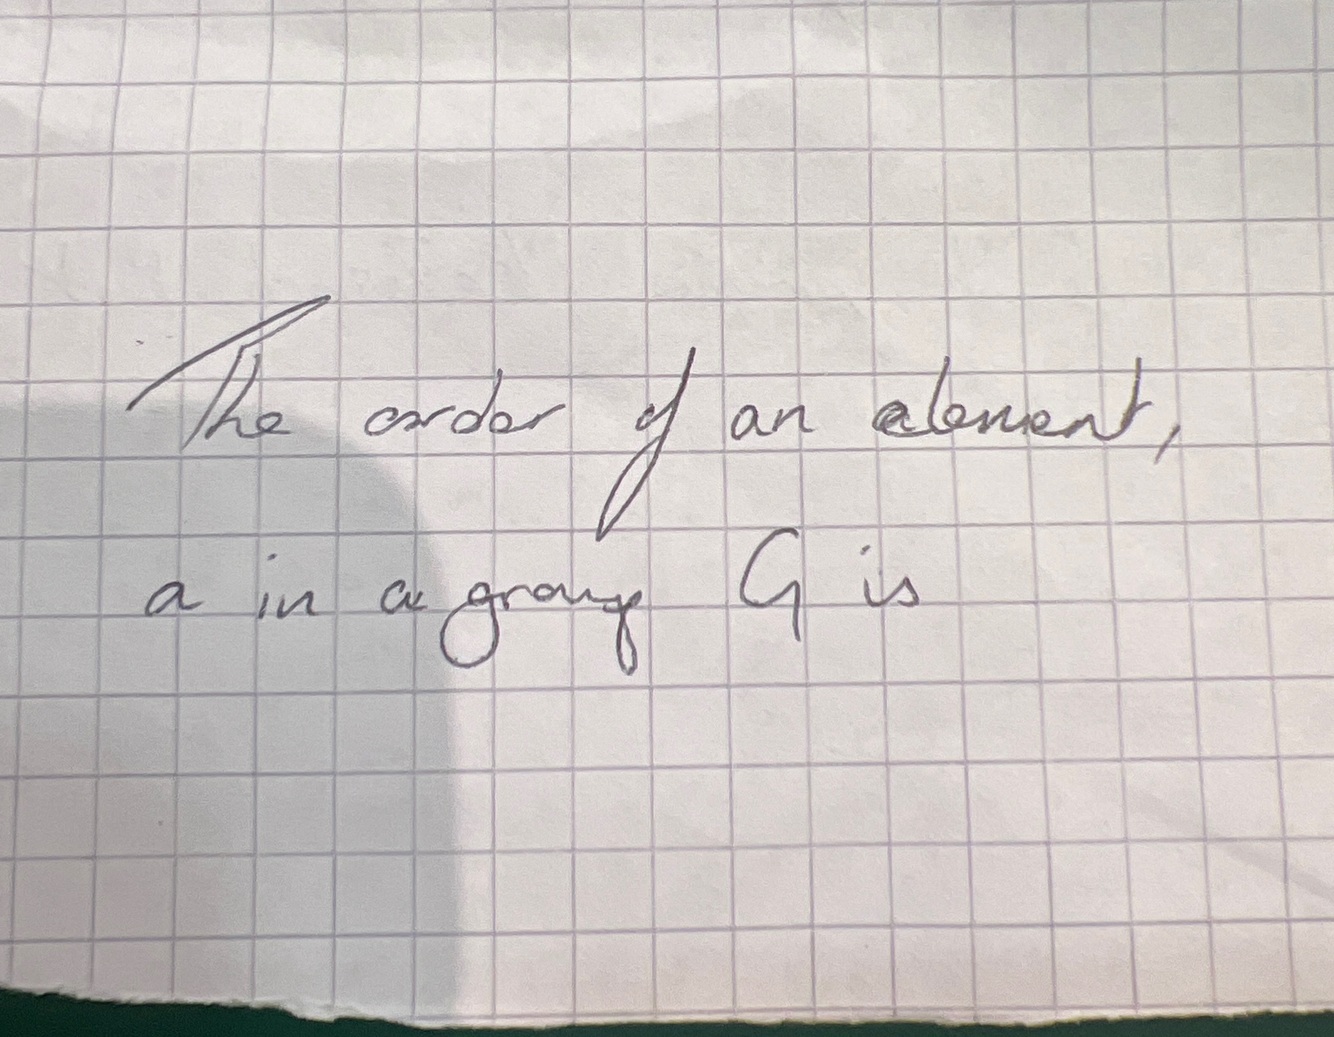 The order of an element,
a in a group G is